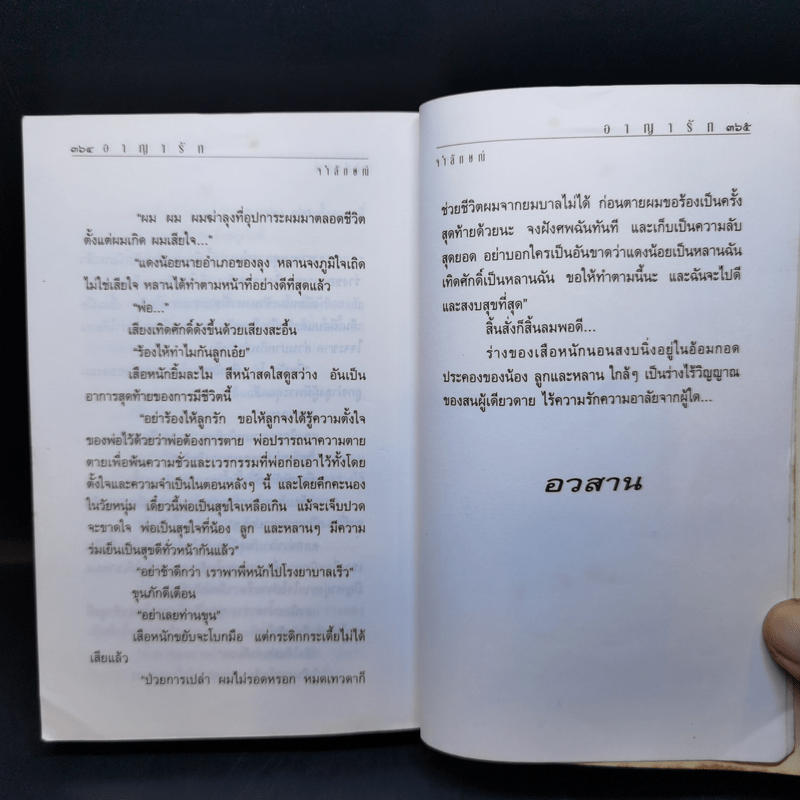 ๓๖๔ อ า ญ า รั ก
จำลักษณ์
“ผม ผม ผมฆ่าลุงที่อุปการะผมมาตลอดชีวิต
ตั้งแต่ผมเกิด ผมเสียใจ...”
“แดงน้อยนายอำเภอของลุง หลานจงภูมิใจเถิด
ไม่ใช่เสียใจ หลานได้ทำตามหน้าที่อย่างดีที่สุดแล้ว
“พ่อ...”
เสียงเทิดศักดิ์ดังขึ้นด้วยเสียงสะอื้น
“ร้องไห้ทำไมกันลูกเอ๋ย”
เสือหนักยิ้มละไม สีหน้าสดใสดูสว่าง อันเป็น
อาการสุดท้ายของการมีชีวิตนี้
“อย่าร้องไห้ลูกรัก ขอให้ลูกจงได้รู้ความตั้งใจ
ของพ่อไว้ด้วยว่าพ่อต้องการตาย พ่อปรารถนาความตาย
ตายเพื่อพ้นความชั่วและเวรกรรมที่พ่อก่อเอาไว้ทั้งโดย
ตั้งใจและความจำเป็นในตอนหลังๆ นี้ และโดยคึกคะนอง
ในวัยหนุ่ม เดี๋ยวนี้พ่อเป็นสุขใจเหลือเกิน แม้จะเจ็บปวด
จะขาดใจ พ่อเป็นสุขใจที่น้อง ลูก และหลานๆ มีความ
ร่มเย็นเป็นสุขดีทั่วหน้ากันแล้ว”
“อย่าช้าดีกว่า เราพาพี่หนักไปโรงยาบาลเร็ว”
ขุนภักดีเตือน
“อย่าเลยท่านขุน”
เสือหนักขยับจะโบกมือ แต่กระดิกกระเดี้ยไม่ได้
เสียแล้ว
“ป่วยการเปล่า ผมไม่รอดหรอก หมดเทวดาก็
อ า ญ า รั ก ๓๖๕
จำลักษณ์
ช่วยชีวิตผมจากยมบาลไม่ได้ ก่อนตายผมขอร้องเป็นครั้ง
สุดท้ายด้วยนะ จงฝังศพฉันทันที และเก็บเป็นความลับ
สุดยอด อย่าบอกใครเป็นอันขาดว่าแดงน้อยเป็นหลานฉัน
เทิดศักดิ์เป็นหลานฉัน ขอให้ทำตามนี้นะ และฉันจะไปดี
และสงบสุขที่สุด”
สิ้นสั่งก็สิ้นลมพอดี...
ร่างของเสือหนักนอนสงบนิ่งอยู่ในอ้อมกอด
ประคองของน้อง ลูกและหลาน ใกล้ๆ เป็นร่างไร้วิญญาณ
ของสนผู้เดียวดาย ไร้ความรักความอาลัยจากผู้ใด...
อวสาน